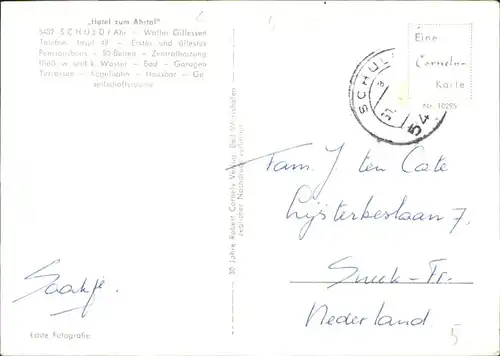 „Hotel zum Ahrtal"
5489 SCHULD / Ahr - Walter Gillessen
Telefon: Insul 49 - Erstes und ältestes
Pensionshaus - 50 Betten - Zentralheizung
fließ. w. und k. Wasser - Bad - Garagen
Terrassen - Kegelbahn - Hausbar - Ge-
sellschaftsräume
Eine
Cornely-
Karte
Nr. 10295
SCHUL
54
30 Jahre Robert Cornely Verlag, Bad
jeglicher Nachdruck verboten
Fam. J. ten Cate
Lijsterbeslaan 7.
Sneek-Fr.
Nederland
Saakje.
Echte Fotografie
5